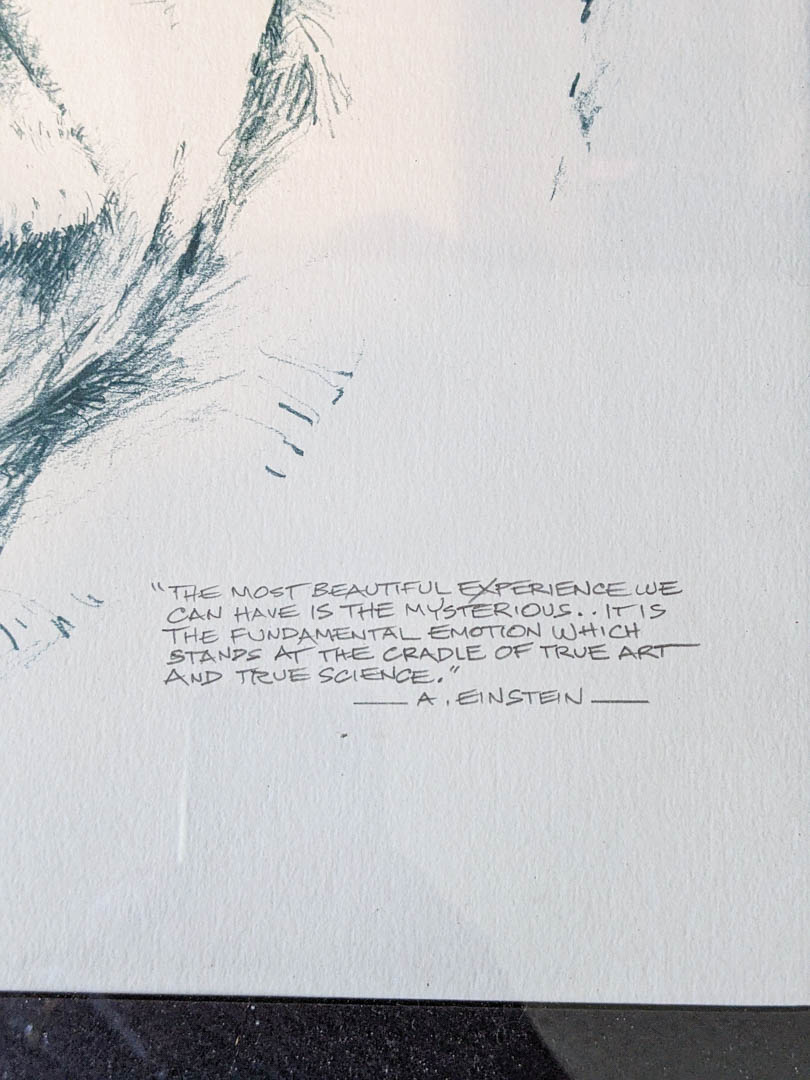 "THE MOST BEAUTIFUL EXPERIENCE WE
CAN HAVE IS THE MYSTERIOUS.. IT IS
THE FUNDAMENTAL EMOTION WHICH
STANDS AT THE CRADLE OF TRUE ART
AND TRUE SCIENCE."
— A. EINSTEIN —